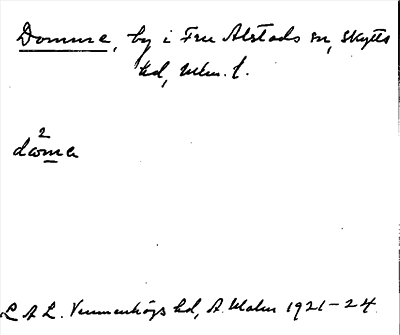 Domme, by i Fru Alstads sn, Skytts
hd, Mlm. l.
2
doma
L A L. Vemmenhögs hd, A. Malm 1921-24.